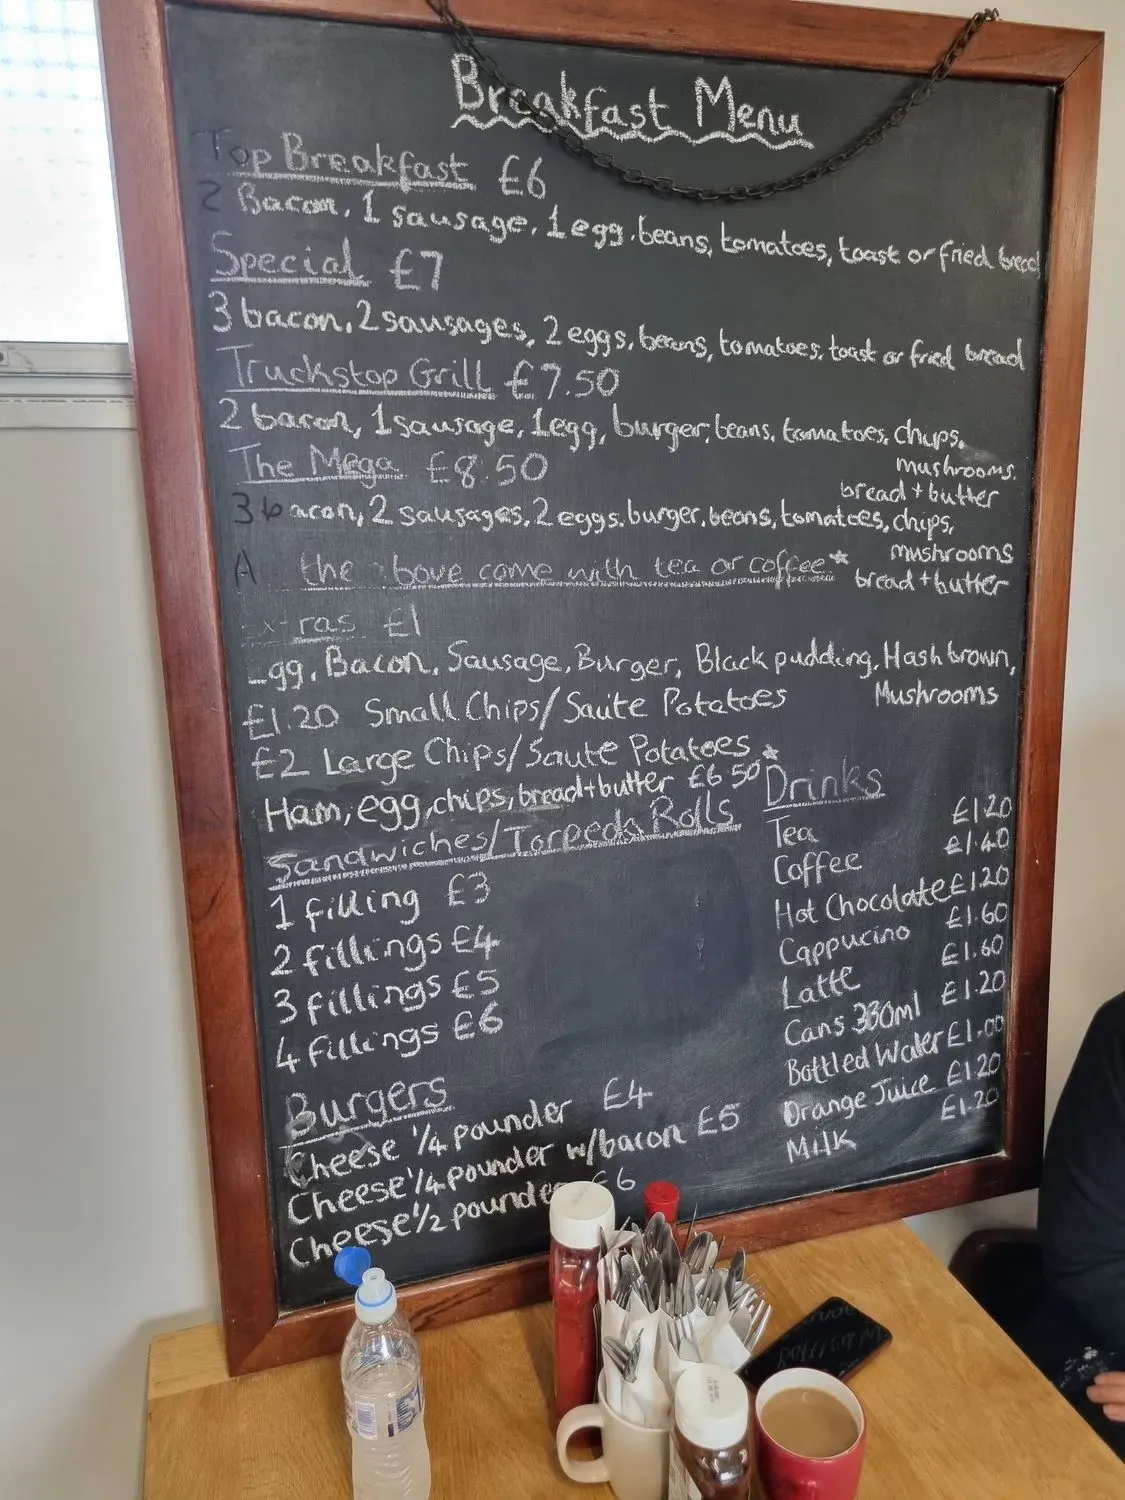 Breakfast Menu
Top Breakfast £6
2 Bacon, 1 sausage, 1 egg, beans, tomatoes, toast or fried bread
Special £7
3 bacon, 2 sausages, 2 eggs, beans, tomatoes, toast or fried bread
Truckstop Grill £7.50
2 bacon, 1 sausage, 1 egg, burger, beans, tomatoes, chips,
mushrooms,
bread + butter
The Mega £8.50
3 bacon, 2 sausages, 2 eggs, burger, beans, tomatoes, chips,
mushrooms
bread + butter
A the bove come with tea or coffee*
xtras £1
Egg, Bacon, Sausage, Burger, Black pudding, Hash brown,
Mushrooms
£1.20 Small Chips/Saute Potatoes
£2 Large Chips/Saute Potatoes
Ham, egg, chips, bread + butter £6.50*
Sandwiches/Torpedo Rolls
1 filling £3
2 fillings £4
3 fillings £5
4 fillings £6
Burgers
Cheese 1/4 pounder £4
Cheese 1/4 pounder w/bacon £5
Cheese 1/2 pounder £6
Drinks
Tea £1.20
Coffee £1.40
Hot Chocolate £1.20
Cappucino £1.60
Latte £1.60
Cans 330ml £1.20
Bottled Water £1.00
Orange Juice £1.20
Milk £1.20